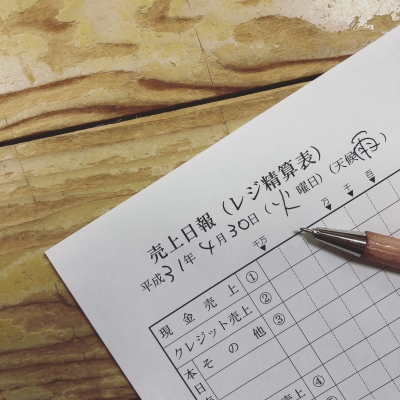 売上日報（レジ精算表）
平成31年4月30日（火曜日）（天候 雨）
千万 万 千 百
現金売上 ①
クレジット売上 ②
その他 ③
本日
売上 ④